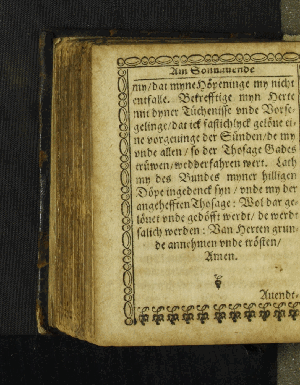 Am Sonnauende
my / dat myne Höpeninge my nicht
entfalle. Befrefftige myn Herte
mit dyner Tüchenisse vnde Vorse-
gelinge / dat ick fastichlyck gelöue ei-
ne vorgeuinge der Sünden / de my
vnde allen / so der Thosage Gades
trüwen / wedderfahren wert. Lath
my des Bundes myner hilligen
Döpe ingedenck syn / vnde my der
angehefften Thosage: Wol dar ge-
löuet vnde gedöfft werdt / de werdt
salich werden: Van Herten grun-
de annehmen vnde trösten /
Amen.
Auendt-